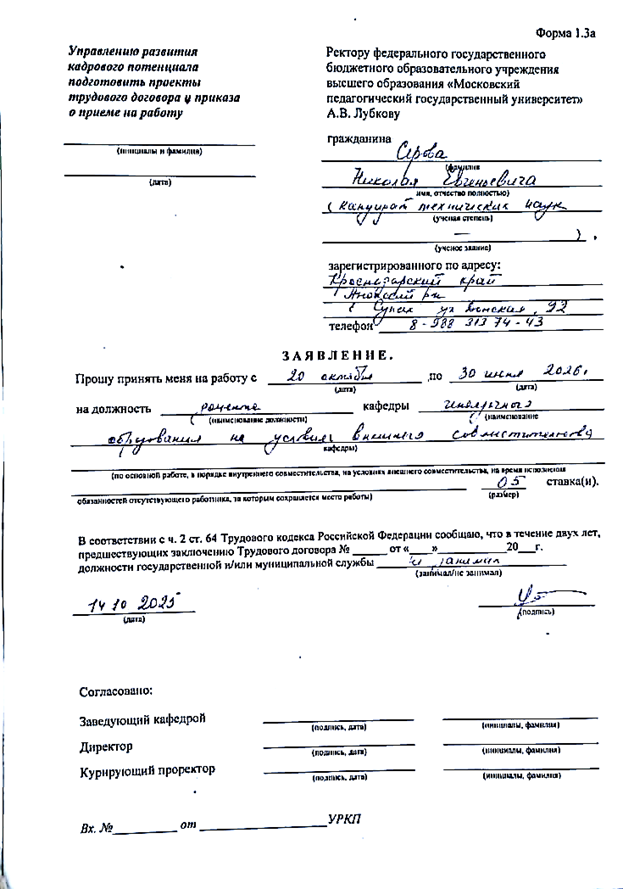 Форма 1.3а
Управлению развития
кадрового потенциала
подготовить проекты
трудового договора и приказа
о приеме на работу
(инициалы и фамилия)
(дата)
Ректору федерального государственного
бюджетного образовательного учреждения
высшего образования «Московский
педагогический государственный университет»
А.В. Лубкову
гражданина
(фамилия
Николая Евгеньевича
имя, отчество полностью)
( кандидат технических наук
(ученая степень)
— ) ,
(ученое звание)
зарегистрированного по адресу:
Краснодарский край
ул Донская , 92
телефон 8-988 313 74-43
ЗАЯВЛЕНИЕ.
Прошу принять меня на работу с 20 октября ,по 30 июня 2026г
(дата) (дата)
на должность доцента кафедры
(наименование должности) (наименование
на условиях внешнего совместительства
кафедры)
(по основной работе, в порядке внутреннего совместительства, на условиях внешнего совместительства, на время исполнения
05 ставка(и).
обязанностей отсутствующего работника, за которым сохраняется место работы) (размер)
В соответствии с ч. 2 ст. 64 Трудового кодекса Российской Федерации сообщаю, что в течение двух лет,
предшествующих заключению Трудового договора № ______ от «___»__________20___г.
должности государственной и/или муниципальной службы занимал
(занимал/не занимал)
14 10 2025
(дата) (подпись)
Согласовано:
Заведующий кафедрой
(подпись, дата) (инициалы, фамилия)
Директор
(подпись, дата) (инициалы, фамилия)
Курирующий проректор
(подпись, дата) (инициалы, фамилия)
Вх. №__________ от ____________________УРКП